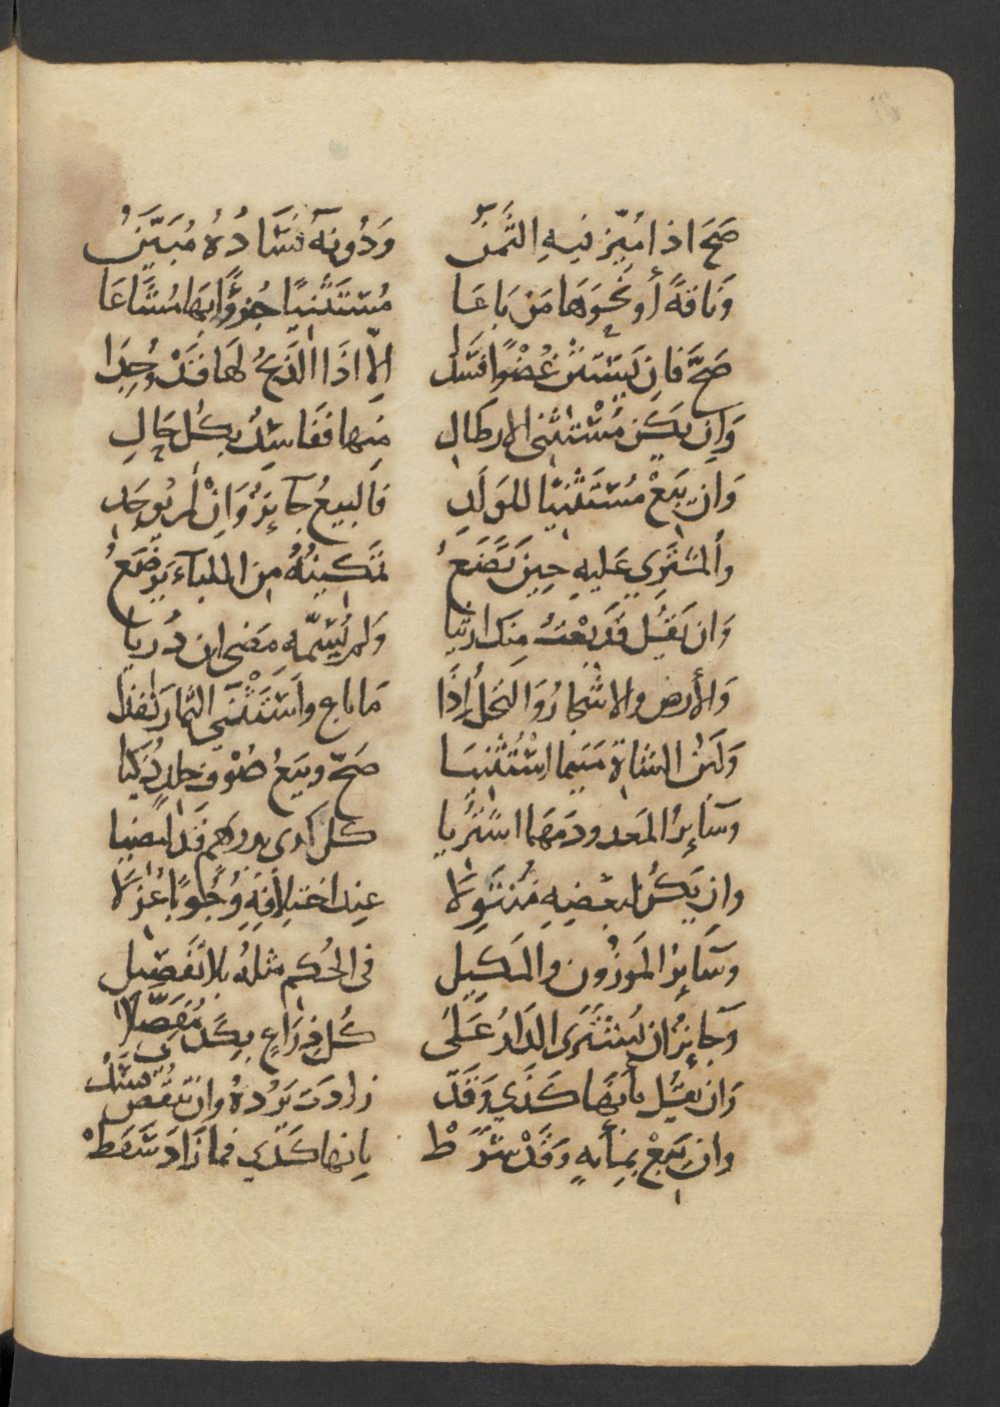 صَحَّ اذا مُيّز فيهِ الثَّمَنُ وَدُونِهِ فَسَادُهُ مُبَيَّنُ
وَنَاقةً أو نَحْوَهَا مَن بَاعَا مُسْتَثْنِيًا جُزْؤًا بِهَا مُشَاعَا
صَحَّ فَإن يَسْتَثْنِ عُضْوًا فَسَدَا إلاّ اذَا الذَّبحُ لهَا قَدْ وُجِدَا
وَإن يَكُن مُسْتَثْنَى الارطَالِ مِنها ففَاسِدٌ بِكُل حَالِ
وَان يَبِعْ مُستَثْنِيًا للوَلَدِ فَالبيعُ جَايِزٌ وَانْ لم يُوجَدِ
والمُشتَرِي عَليهِ حِينَ تَضَعُ تمكِينُهُ مِنَ اللباءِ يَرْضَعُ
وَان يَقُل قَدْ بعْتُ مِنكَ ارضِيا وَلم يُسَمّهِ مَضَى ان دُرِيا
وَالأرض والاشجارُ وَالنَخلُ إذَا مَا باع واستَثْنَى الثمار نَفَذا
وَلَبَن الشاة مَتَى ما استُثْنِيَا صَحّ وبَيعُ صُوْف جلدٍ ذُكّيا
وسَآيِرُ المَعدود مَهمَا اشتُرِيَا كل كذى بدرهم قد امضِيا
وان يَكُن لبعْضِهِ مُسْتَوْلا عِند اختِلافِهِ وُجُوبًا عُزِلَا
وسَآيِرُ المَوزُون والمَكِيلِ فى الحُكم مثلهُ بِلا تَفصِيل
وَجَايِزٌ ان يُشْتَرَى الدَارُ عَلَى كُل ذِرَاعٍ بِكَذى مُفَصَّلا
وَان يَقُل بأنهَا كَذَي وَقَد زَادَت يَرُدهُ وان تنقُص فسَد
وان يَبِعْ بمِأيهٍ وَقَدْ شَرَطْ بانها كَذَي فما زَادَ سَقَطْ